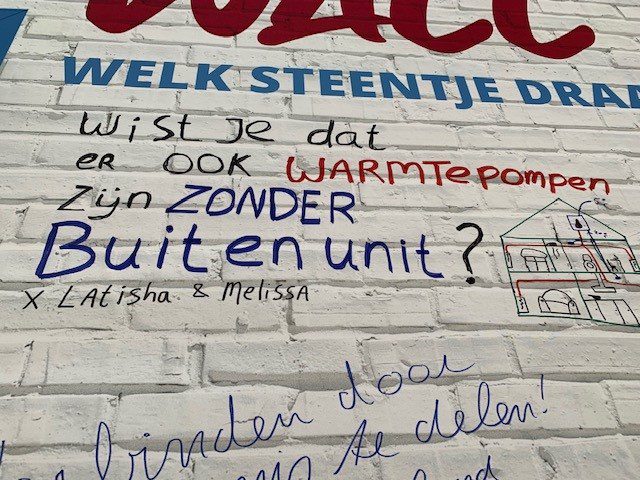 WALL
WELK STEENTJE DRAA
Wist Je dat
er OOK WARMTepompen
Zijn ZONDER
Buitenunit?
X LAtisha & MelissA
binden door
te delen!